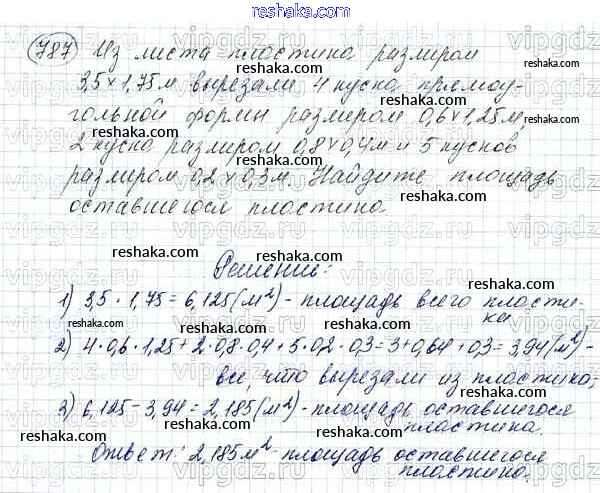 reshaka.com
787 Из листа пластика размером
3,5×1,75м вырезали 4 куска прямоу-
гольной формы размером 0,6×1,25м,
2 куска размером 0,8×0,4м и 5 кусков
размером 0,2×0,3м. Найдите площадь
оставшегося пластика
Решение:
1) 3,5 · 1,75 = 6,125 (м²) - площадь всего пласти-
ка
2) 4·0,6·1,25+2·0,8·0,4+5·0,2·0,3=3+0,64+0,3=3,94(м²)-
все, что вырезали из пластика;
3) 6,125-3,94=2,185(м²)-площадь оставшегося
пластика.
Ответ: 2,185м²-площадь оставшегося
пластика.
reshaka.com